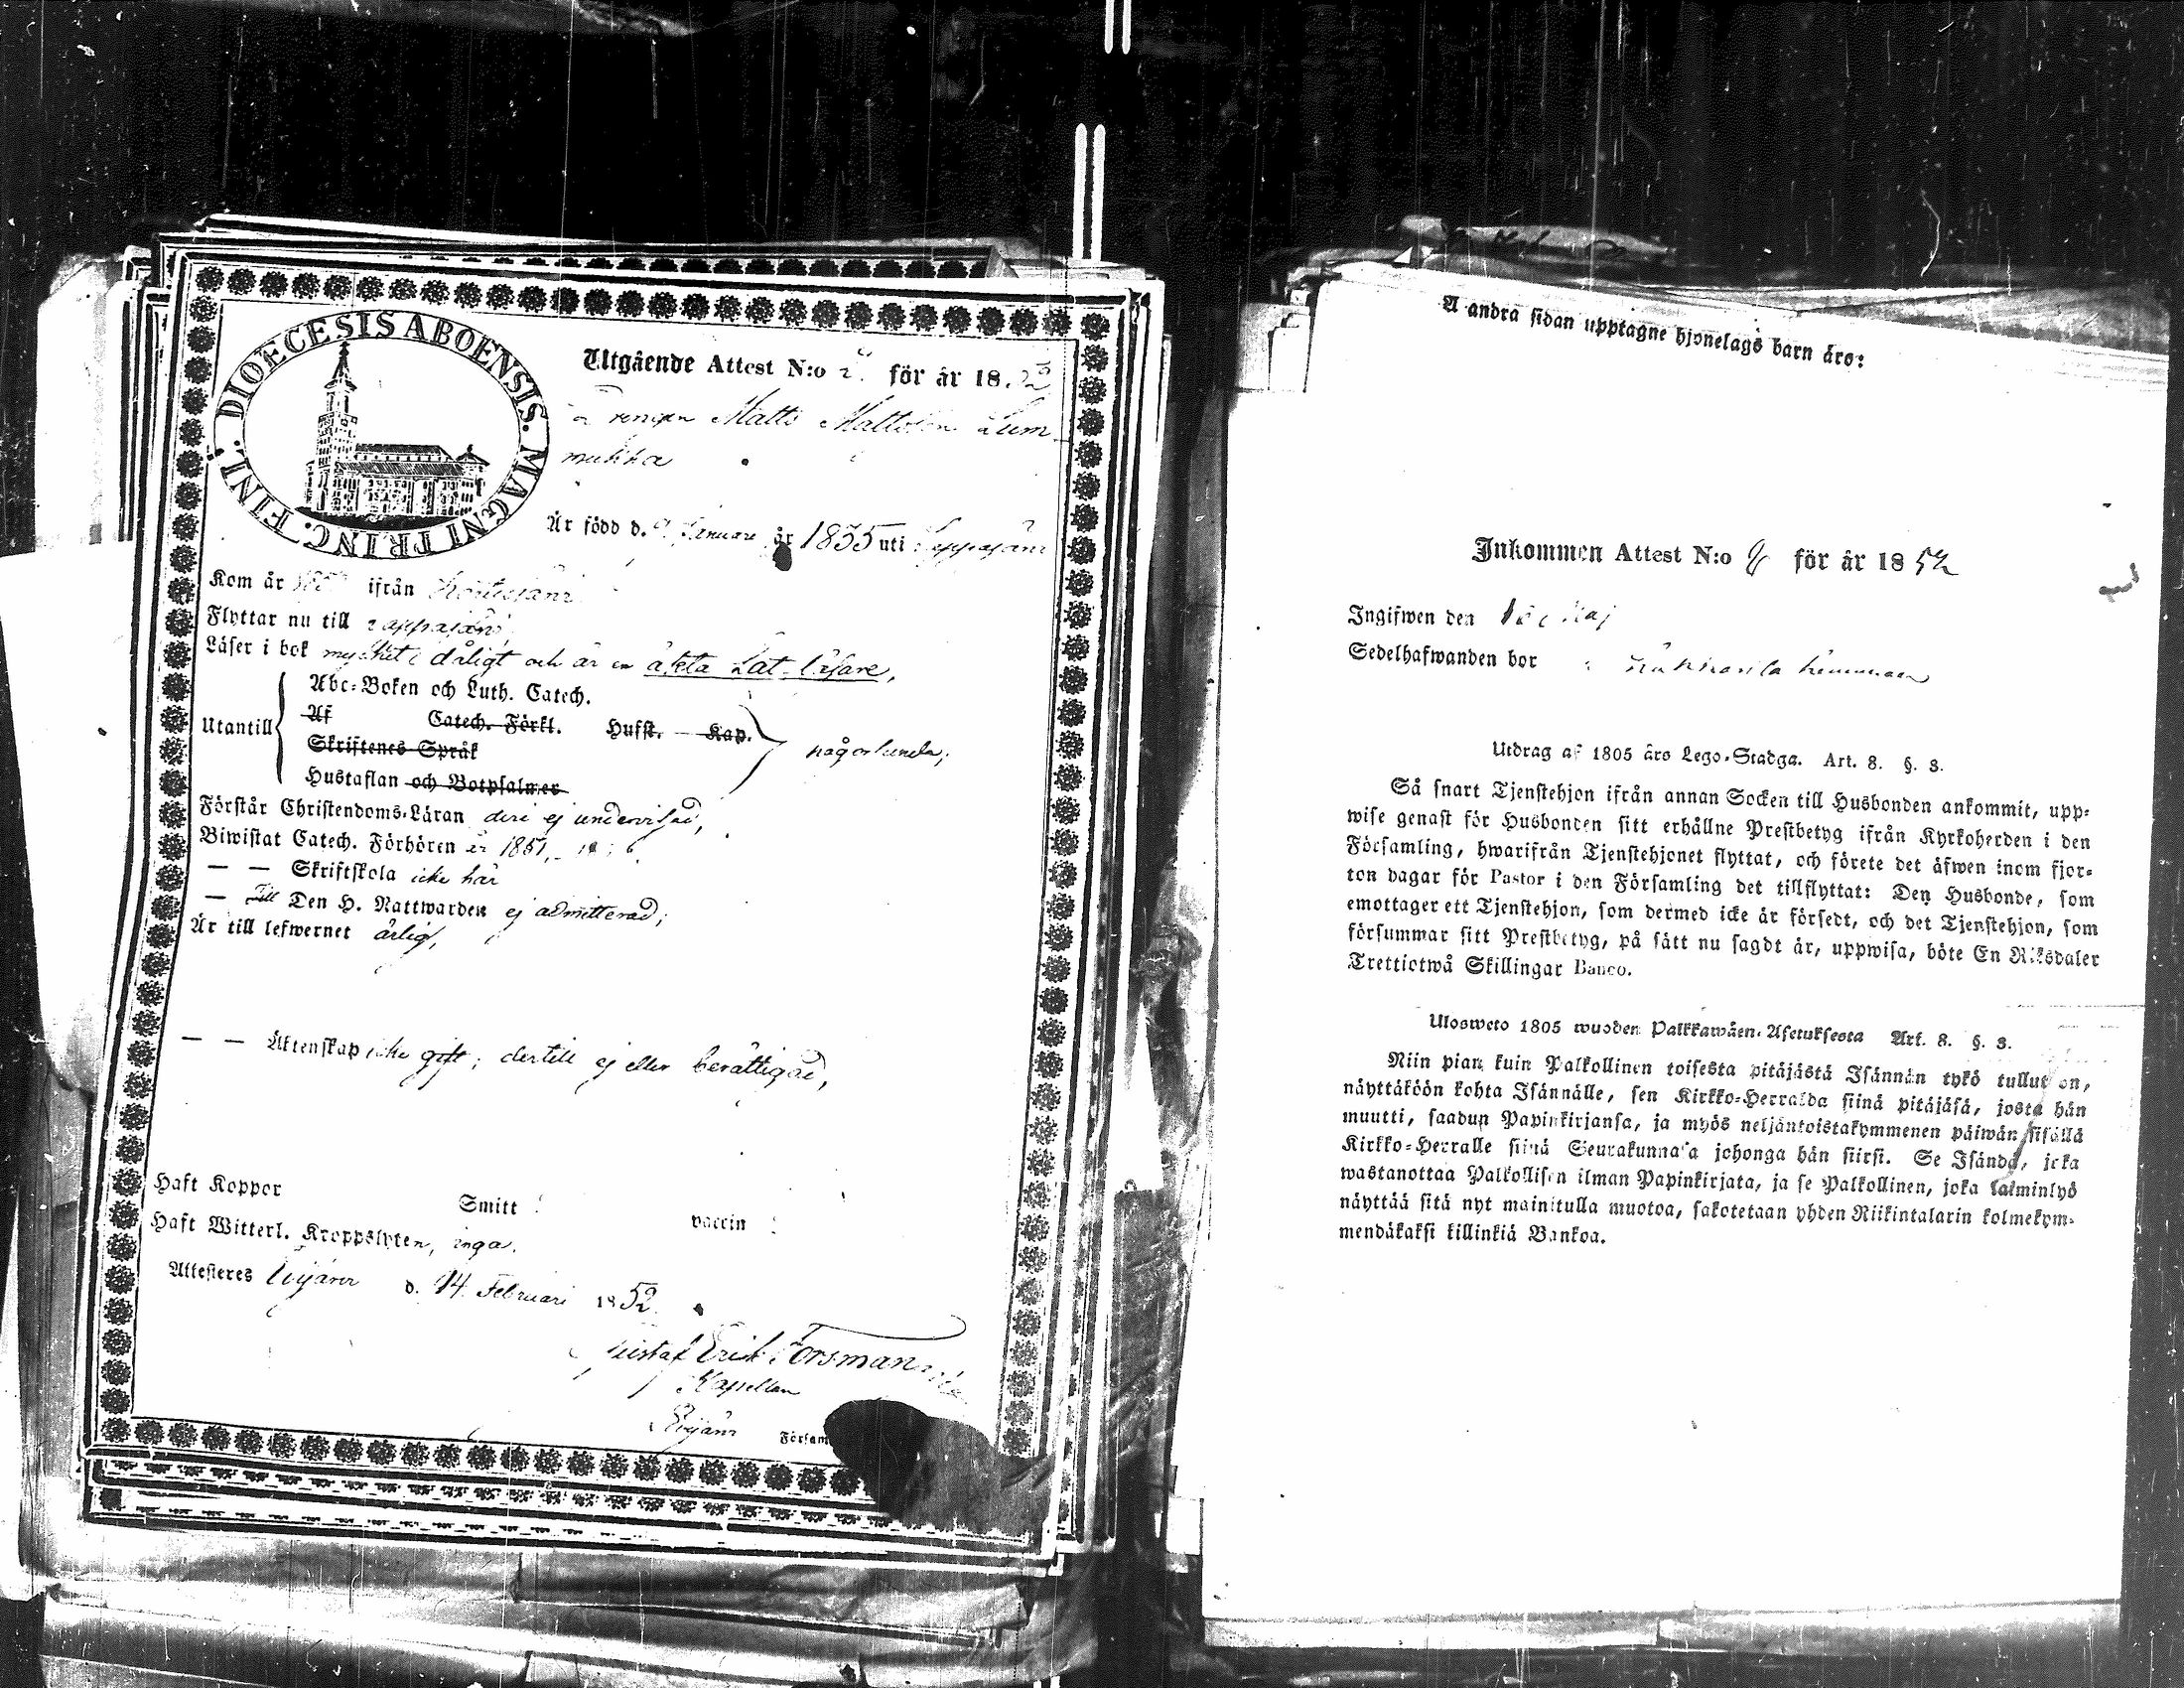 DIOECESIS ABOENSIS. MAGNI PRINC. FINL.
Utgående Attest N:o för år 18
Drengen Matts Mattsson Lum-
mukka
Är född d. 9 Januari år 1835 uti Lappajärvi
Kom år ifrån Kortesjärvi
Flyttar nu till Lappajärvi
Läser i bok mycket dåligt och är en äkta Lat-läsare,
Utantill
Abc-Boken och Luth. Catech.
Af Catech. Förkl. Hufst. — Kap.
Skriftenes Språk
Hustaflan och Botpsalmer
någorlunda;
Förstår Christendoms-Läran deri ej undervisad,
Biwistat Catech. Förhören år 1851,
— — Skriftskola icke här
— Till Den H. Nattwarden ej admitterad;
Är till lefwernet ärlig,
— — Äktenskap icke gift; dertill ej eller berättigad,
Haft Koppor Smitt vaccin
Haft Witterl. Kroppslyten, inga.
Attesteres Evijärvi d. 14 Februari 1852.
Gustaf Erik Forsman
Kapellan
Evijärvi Försam
Å andra sidan upptagne hjonelags barn äro:
Inkommen Attest N:o 8 för år 1852
Ingifwen den Maj
Sedelhafwanden bor hemman
Utdrag af 1805 års Lego-Stadga. Art. 8. §. 3.
Så snart Tjenstehjon ifrån annan Socken till Husbonden ankommit, upp-
wise genast för Husbonden sitt erhållne Prestbetyg ifrån Kyrkoherden i den
Församling, hwarifrån Tjenstehjonet flyttat, och förete det äfwen inom fjor-
ton dagar för Pastor i den Församling det tillflyttat: Den Husbonde, som
emottager ett Tjenstehjon, som dermed icke är försedt, och det Tjenstehjon, som
försummar sitt Prestbetyg, på sätt nu sagdt är, uppwisa, böte En Riksdaler
Trettiotwå Skillingar Banco.
Ulosweto 1805 wuoden Palkkawäen-Asetuksesta Art. 8. §. 3.
Niin pian kuin Palkollinen toisesta pitäjästä Isännän tykö tullut on,
näyttäköön kohta Isännälle, sen Kirkko-Herralda siinä pitäjäsä, josta hän
muutti, saadun Papinkirjansa, ja myös neljäntoistakymmenen päiwän sisällä
Kirkko-Herralle siinä Seurakunnasa johonga hän siirsi. Se Isändä, joka
wastanottaa Palkollisen ilman Papinkirjata, ja se Palkollinen, joka laiminlyö
näyttää sitä nyt mainitulla muotoa, sakotetaan yhden Riikintalarin kolmekym-
mendäkaksi killinkiä Bankoa.